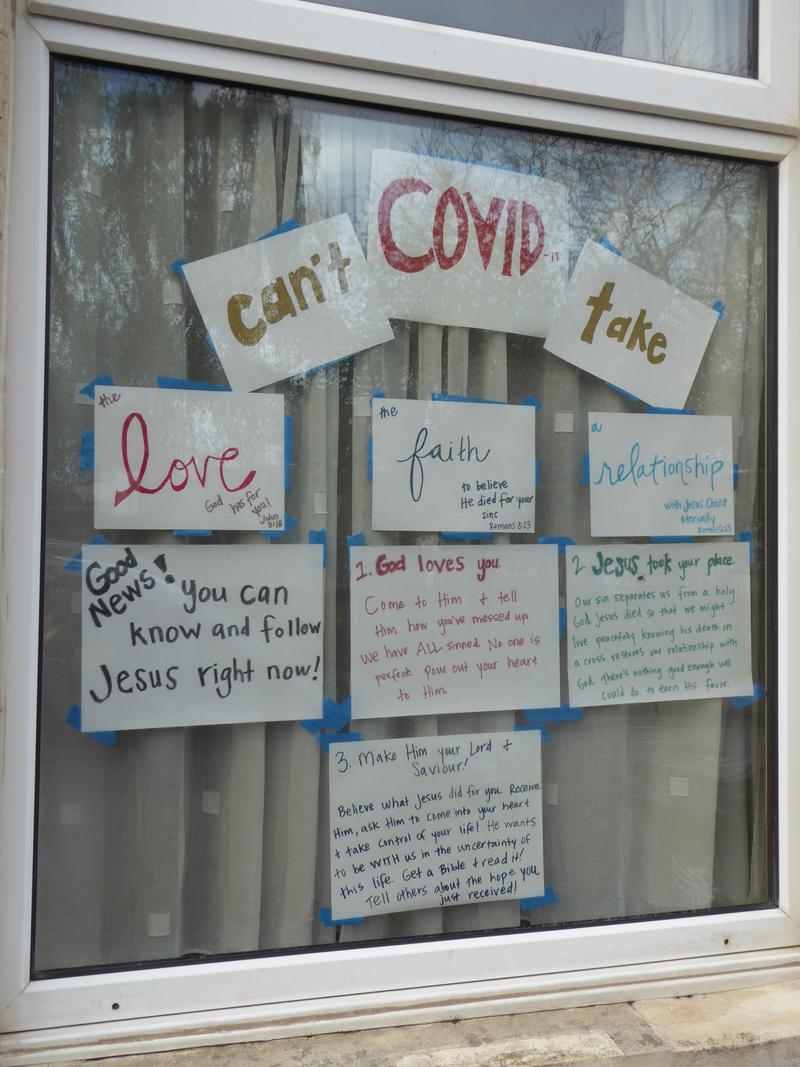 can't
COVID-19
take
the
love
God has for
you!
John
3:16
the
faith
to believe
He died for your
sins
Romans 3:23
a
relationship
with Jesus Christ
eternally
Romans 6:23
Good
News!
you can
know and follow
Jesus right now!
1. God loves you.
Come to Him & tell
Him how you've messed up
We have ALL sinned. No one is
perfect. Pour out your heart
to Him.
2 Jesus took your place.
Our sin separates us from a holy
God. Jesus died so that we might
live peacefully knowing his death on
a cross restores our relationship with
God. There's nothing good enough we
could do to earn His favor.
3. Make Him your Lord &
Saviour!
Believe what Jesus did for you. Receive
Him, ask Him to come into your heart
& take control of your life! He wants
to be WITH us in the uncertainty of
this life. Get a Bible & read it!
Tell others about the hope you
just received!